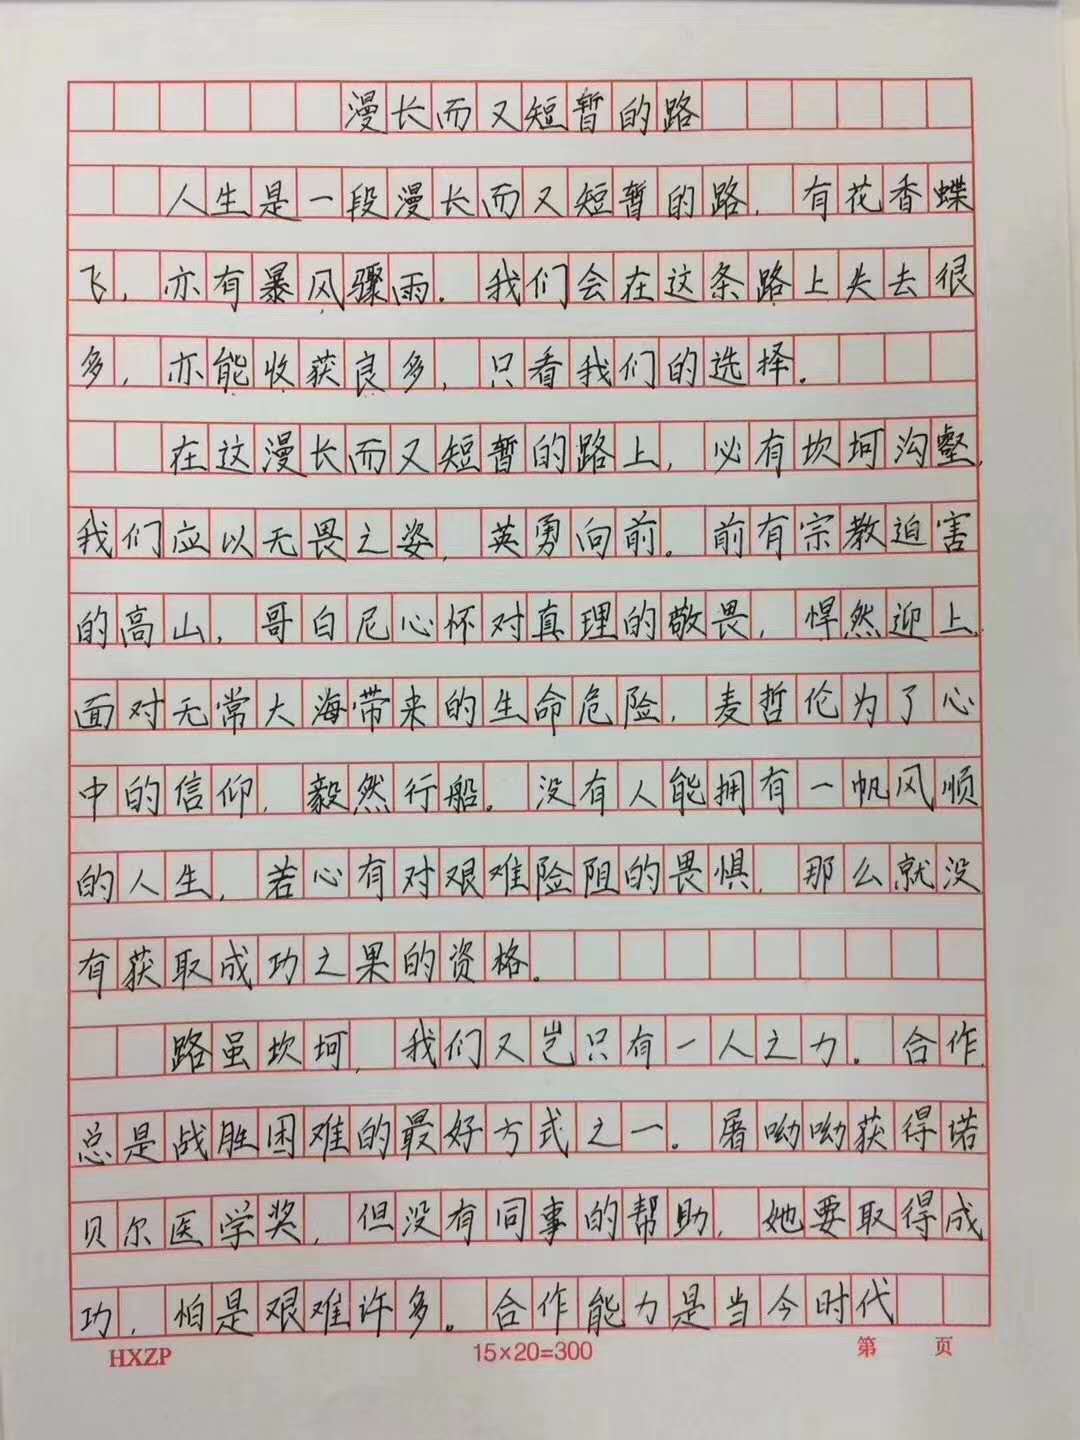 漫长而又短暂的路
人生是一段漫长而又短暂的路，有花香蝶
飞，亦有暴风骤雨。我们会在这条路上失去很
多，亦能收获良多，只看我们的选择。
在这漫长而又短暂的路上，必有坎坷沟壑，
我们应以无畏之姿，英勇向前。前有宗教迫害
的高山，哥白尼心怀对真理的敬畏，悍然迎上，
面对无常大海带来的生命危险，麦哲伦为了心
中的信仰，毅然行船。没有人能拥有一帆风顺
的人生，若心有对艰难险阻的畏惧，那么就没
有获取成功之果的资格。
路虽坎坷，我们又岂只有一人之力。合作，
总是战胜困难的最好方式之一。屠呦呦获得诺
贝尔医学奖，但没有同事的帮助，她要取得成
功，怕是艰难许多。合作能力是当今时代
HXZP 15×20=300 第 页